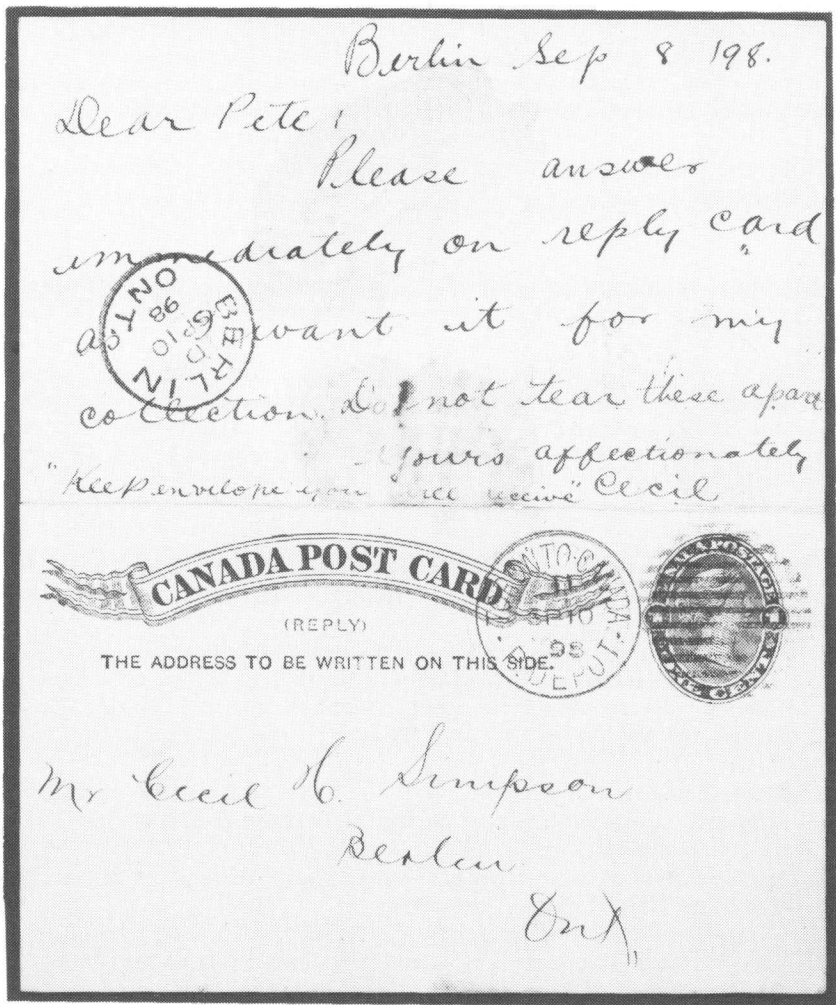 Berlin Sep 8 198.
Dear Pete,
Please answer
immediately on reply card
as want it for my
collection. Do not tear these apart
Yours affectionately
"Keep envelope you will receive" Cecil
BERLIN ONT.
SP 10
98
CANADA POST CARD
(REPLY)
THE ADDRESS TO BE WRITTEN ON THIS SIDE.
NTO·CANADA·
11
SP 10
98
DEPOT.
Mr Cecil H. Simpson
Berlin
Ont,